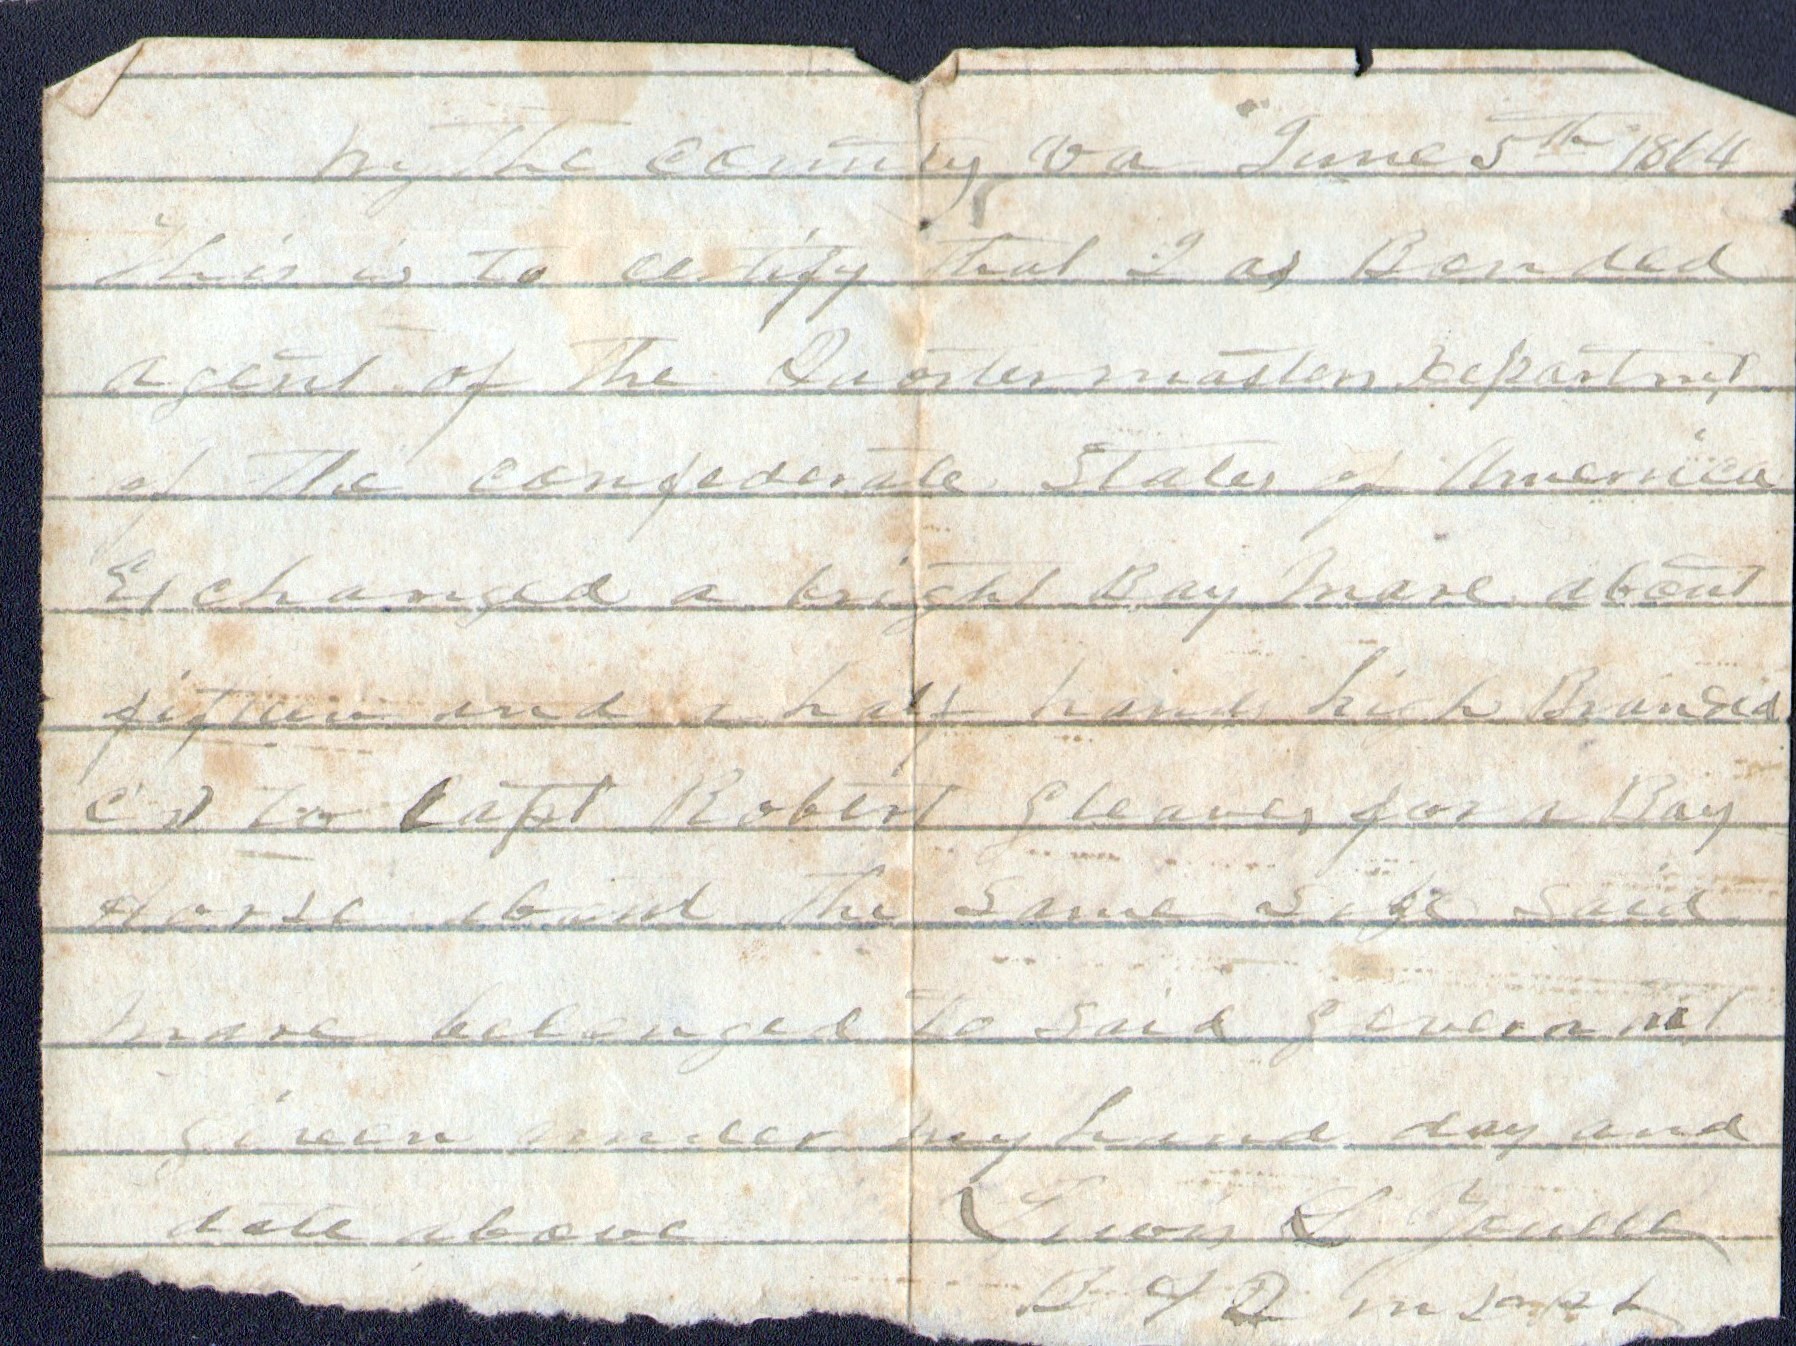 Wythe county va June 5th 1864
This is to certify that I as Bonded
agent of the Quartermasters Department
of the confederate States of America
Exchanged a bright Bay Mare about
fifteen and a half hands high Branded
C S to Capt Robert Gleaves for a Bay
Horse about the Same Size Said
Mare belonged to Said Goverment
given under my hand day and
date above
B A Q M Dept